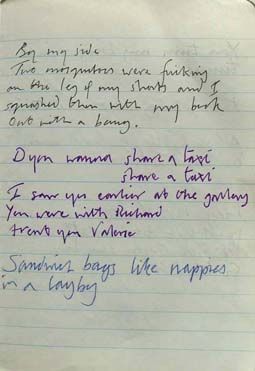 By my side
Two mosquitoes were fucking
on the leg of my shorts and I
squashed them with my book
Out with a bang.
D'you wanna share a taxi
share a taxi
I saw you earlier at the gallery
You were with Richard
aren't you Valerie
Sandwich bags like nappies
in a layby